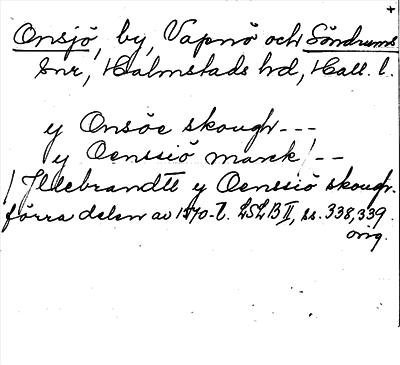 Onsjö, by, Vapnö och Söndrums
snr, Halmstads hd, Hall. l.
y Onsöe skough ---
y Oenssiö marck / --
/ Jllebrandtt y Oenssiö skough.
förra delen av 1570-t. LSLB II, ss. 338, 339.
orig.